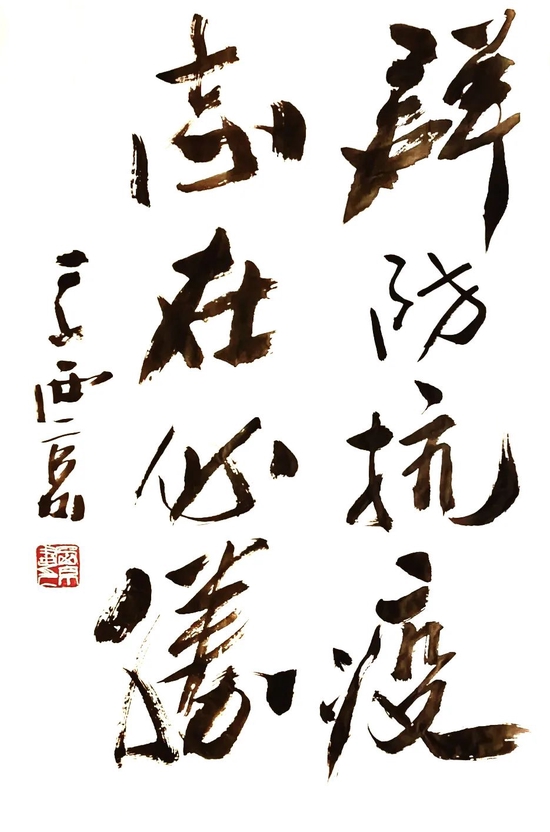 群防抗疫
志在必勝